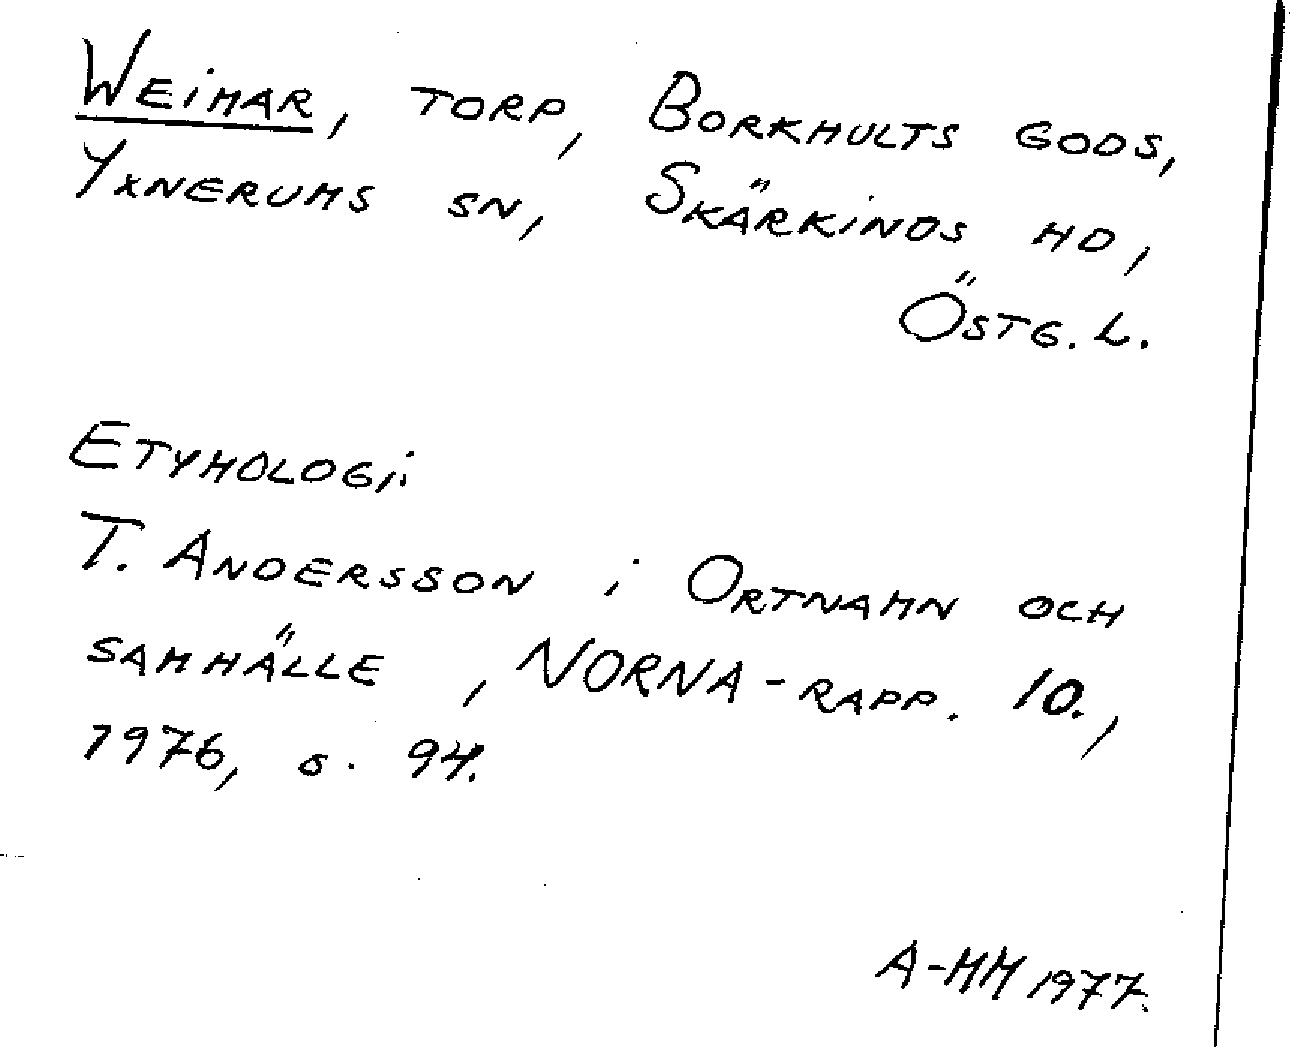 Weimar, torp, Borkhults gods,
Yxnerums sn, Skärkinds hd,
Östg. L.
Etymologi:
T. Andersson i Ortnamn och
samhälle, NORNA-rapp. 10.,
1976, s. 94.
A-MM 1977.